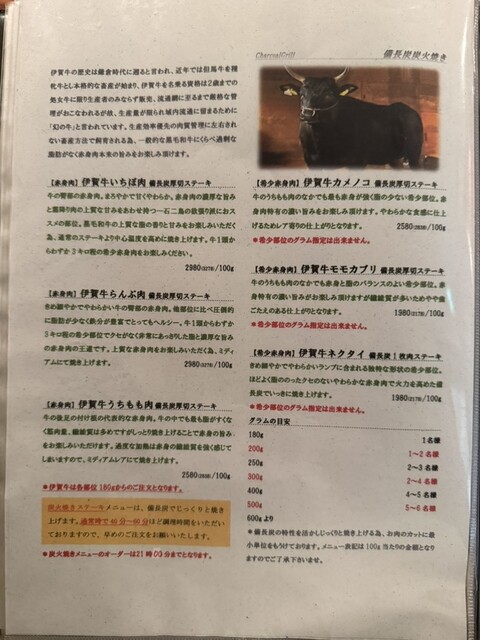 CharcoalGrill 備長炭炭火焼き
伊賀牛の歴史は鎌倉時代に遡ると言われ、近年では但馬牛を種
牡牛とし本格的な畜産が始まり、伊賀牛を名乗る資格は2歳までの
処女牛に限り生産者のみならず販売、流通網に至るまで厳格な管
理がおこなわれるが故、生産量が限られ域内流通に留まるために
「幻の牛」と言われています。生産効率優先の肉質管理に左右され
ない畜産方法で飼育される為、一般的な黒毛和牛にくらべ過剰な
脂肪がなく赤身肉本来の旨みをお楽しみ頂けます。
【赤身肉】伊賀牛いちぼ肉 備長炭厚切ステーキ
牛の臀部の赤身肉。まろやかで甘くやわらか。赤身肉の濃厚な旨み
と霜降り肉の上質な甘みをあわせ持つ一石二鳥の欲張り派におス
スメの部位。黒毛和牛の上質な脂の香りと甘みをお楽しみいただく
為、通常のステーキより中心温度を高めに焼き上げます。牛1頭か
らわずか3キロ程の希少赤身肉をお楽しみください。
2980/100g
【赤身肉】伊賀牛らんぷ肉 備長炭厚切ステーキ
きめ細やかでやわらかい牛の臀部の赤身肉。他部位に比べ圧倒的
に脂肪が少なく鉄分が豊富でとってもヘルシー。牛1頭からわずか
3キロ程の希少部位でクセがなく非常にあっさりした脂と濃厚な旨み
の赤身肉の王道です。上質な赤身肉をお楽しみいただく為、ミディ
アムにて焼き上げます。
2980/100g
【赤身肉】伊賀牛うちもも肉 備長炭厚切ステーキ
牛の後足の付け根の代表的な赤身肉。牛の中でも最も脂がすくな
く筋肉量、繊維質は多めですがしっとり焼き上げることで赤身の旨み
をお楽しみいただけます。過度な加熱は赤身の繊維質を強く感じて
しまいますので、ミディアムレアにて焼き上げます。
2580/100g
※伊賀牛は各部位180gからのご注文となります。
炭火焼きステーキメニューは、備長炭でじっくりと焼き
上げます。通常時で45分～60分ほど調理時間をいただい
ておりますので、早めのご注文をお願いいたします。
※炭火焼きメニューのオーダーは21時00分までとなります。
【希少赤身肉】伊賀牛カメノコ 備長炭厚切ステーキ
牛のうちもも肉のなかでも最も赤身が強く脂の少ない希少部位。赤
身肉特有の濃い旨みがお楽しみ頂けます。やわらかな食感に仕上
げるためレア寄りの仕上がりとなります。 2580/100g
※希少部位のグラム指定は出来ません。
【希少赤身肉】伊賀牛モモカブリ 備長炭厚切ステーキ
牛のうちもも肉のなかでも赤身と脂のバランスのよい希少部位。赤
身特有の濃い旨みがお楽しみ頂けますが繊維質が多いためやや歯
ごたえのある仕上がりとなります。 1980/100g
※希少部位のグラム指定は出来ません。
【希少赤身肉】伊賀牛ネクタイ 備長炭1枚肉ステーキ
きめ細やかでやわらかいランプに含まれる独特な形状の希少部位。
ほどよく脂ののったクセのないやわらかな赤身肉で火力を高めた備
長炭でいっきに焼き上げます。 1980/100g
※希少部位のグラム指定は出来ません。
グラムの目安
180g 1名様
200g 1～2名様
250g 2～3名様
300g 2～4名様
400g 3～4名様
500g 5～6名様
600gより
※備長炭の特性を活かしじっくりと焼き上げる為、お肉のカットに最
小単位をもうけております。メニュー表記は100g当たりの金額となり
ますのでご了承下さいませ。